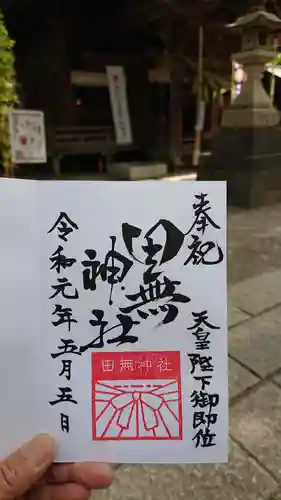 奉祝
天皇陛下御即位
田無
神社
田無神社
令和元年五月五日